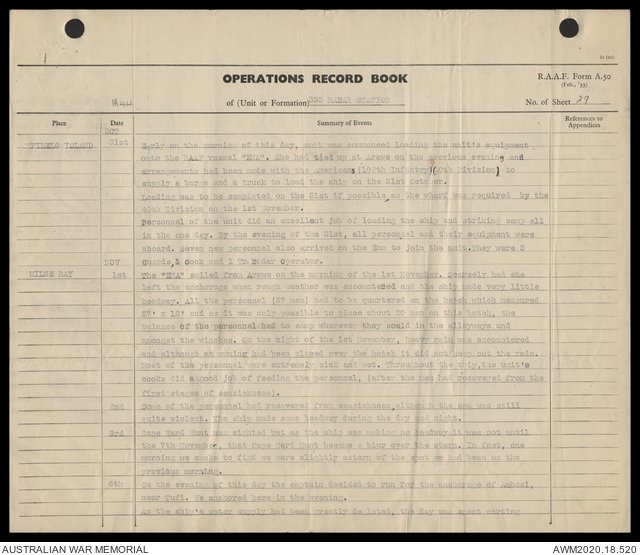 OPERATIONS RECORD BOOK
R.A.A.F. Form A.50
(Feb., '33)
of (Unit or Formation) RADAR STATION
No. of Sheet 29
1944
Place
Date
Summary of Events
References to
Appendices
OCT
PILELO ISLAND 31st Early on the morning of this day, work was commenced loading the unit's equipment
onto the RAAF vessel "EMA". She had tied up at Arawe on the previous evening and
arrangements had been made with the Americans (108th Infantry)(40th Division) to
supply a barge and a truck to load the ship on the 31st October.
Loading was to be completed on the 31st if possible, as the wharf was required by the
40th Division on the 1st November.
Personnel of the unit did an excellent job of loading the ship and striking camp all
in the one day. By the evening of the 31st, all personnel and their equipment were
aboard. Seven new personnel also arrived on the Ema to join the unit. They were 5
Guards, 1 Cook and 1 Tr. Radar Operator.
NOV
MILNE BAY 1st The "EMA" sailed from Arawe on the morning of the 1st November. Scarcely had she
left the anchorage when rough weather was encountered and the ship made very little
headway. All the personnel (37 men) had to be quartered on the hatch which measured
27' x 12' and as it was only possible to place about 20 men on this hatch, the
balance of the personnel had to camp wherever they could in the alleyways and
amongst the winches. On the night of the 1st November, heavy rain was encountered
and although an awning had been placed over the hatch it did not keep out the rain.
Most of the personnel were extremely sick and wet. Throughout the trip, the unit's
cooks did a good job of feeding the personnel, (after the men had recovered from the
first stages of seasickness).
2nd Some of the personnel had recovered from seasickness, although the sea was still
quite violent. The ship made some headway during the day and night.
3rd Cape Ward Hunt was sighted but as the ship was making no headway it was not until
the 7th November, that Cape Ward Hunt became a blur over the stern. In fact, one
morning we awoke to find we were slightly astern of the spot we had been on the
previous morning.
6th On the evening of this day the captain decided to run for the anchorage of
near Tufi. We anchored here in the evening.
As the ship's water supply had been greatly depleted, the day was spent carting
AUSTRALIAN WAR MEMORIAL
AWM2020.18.520